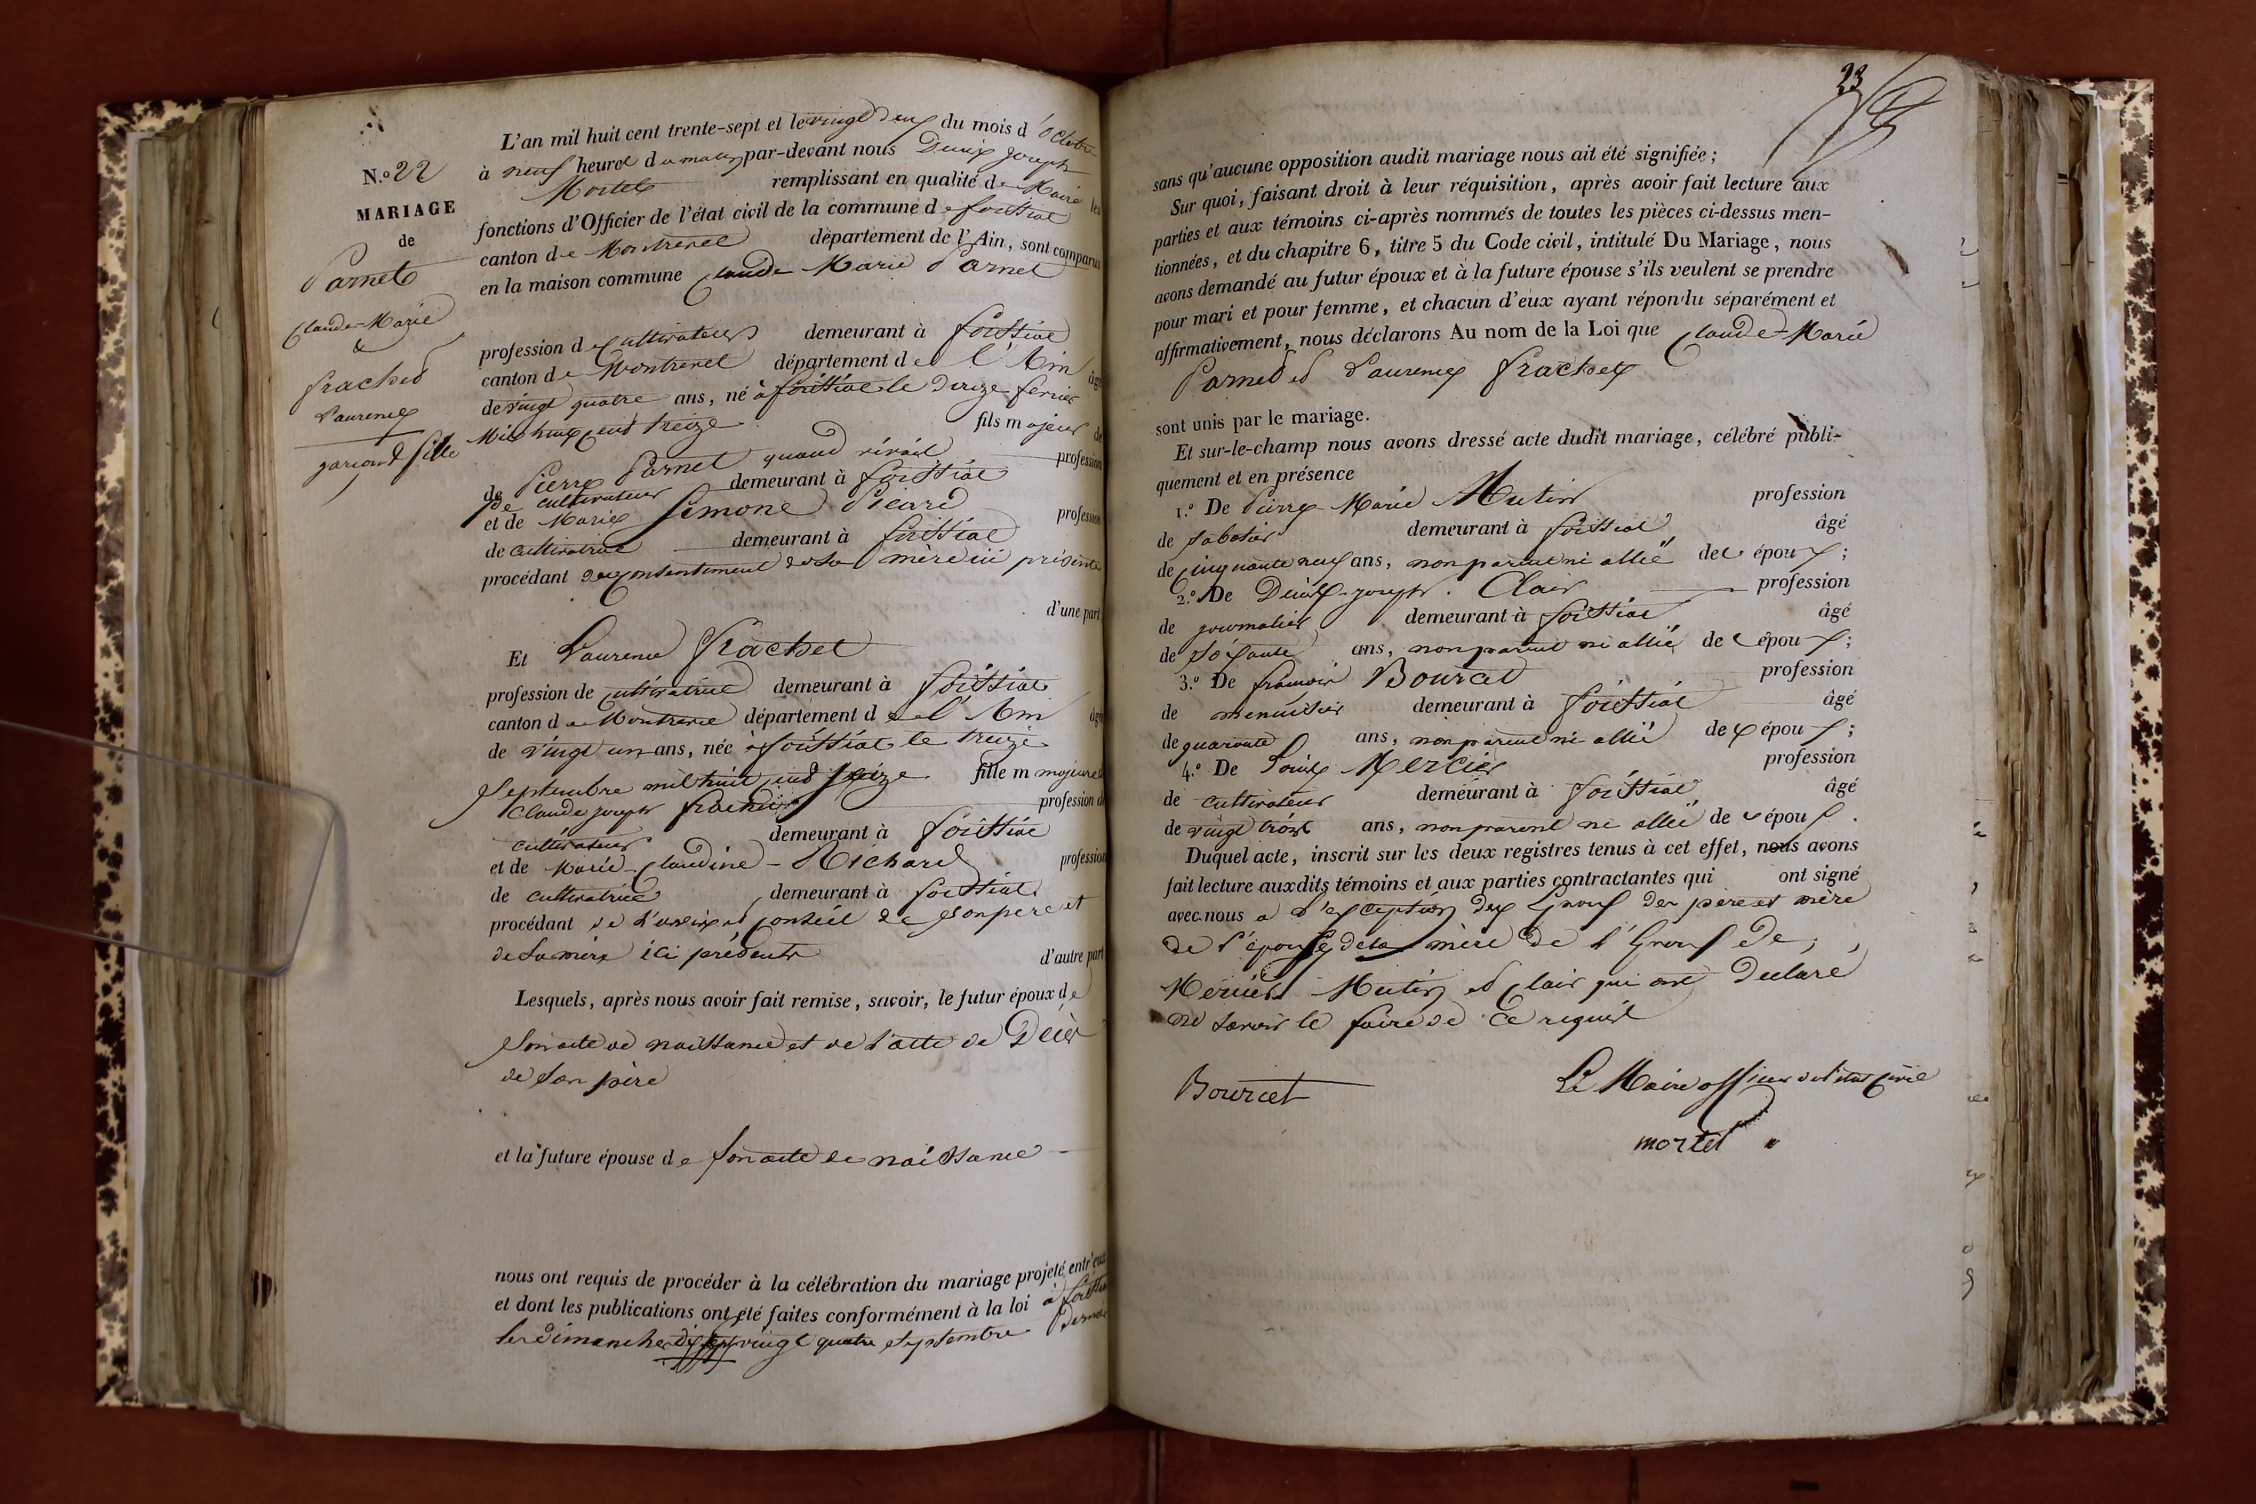 N.º 22
MARIAGE
de
Parnet
Claude-Marie
&
frachet
Laurence
garçon & fille
L'an mil huit cent trente-sept et le vingt deux du mois d'octobre
à neuf heures du matin par-devant nous Denis joseph
Mortel remplissant en qualité de Maire les
fonctions d'Officier de l'état civil de la commune de foissiat
canton de Montrevel département de l'Ain, sont comparus
en la maison commune Claude Marie Parnet
profession de cultivateur demeurant à foissiat
canton de Montrevel département de l'Ain âgé
de vingt quatre ans, né à foissiat le février
mil huit cent treize fils majeur de
de Pierre Parnet quand vivait profession
de cultivateur demeurant à foissiat
et de Marie Simone Picard profession
de cultivatrice demeurant à foissiat
procédant du consentement de sa mère ici présente
d'une part
Et Laurence frachet
profession de cultivatrice demeurant à foissiat
canton de Montrevel département de l'Ain âgée
de vingt un ans, née à foissiat le treize
Septembre mil huit cent seize fille m majeure de
Claude joseph profession de
cultivateur demeurant à foissiat
et de Marie-Claudine-Richard profession
de cultivatrice demeurant à foissiat
procédant de l'avis et conseil de son père et
de sa mère ici présents d'autre part
Lesquels, après nous avoir fait remise, savoir, le futur époux de
son acte de naissance et de l'acte de Décès
de son père
et la future épouse de son acte de naissance
nous ont requis de procéder à la célébration du mariage projeté entr'eux
et dont les publications ont été faites conformément à la loi à foissiat
les dimanches vingt quatre septembre dernier
23
sans qu'aucune opposition audit mariage nous ait été signifiée ;
Sur quoi, faisant droit à leur réquisition, après avoir fait lecture aux
parties et aux témoins ci-après nommés de toutes les pièces ci-dessus men-
tionnées, et du chapitre 6, titre 5 du Code civil, intitulé Du Mariage, nous
avons demandé au futur époux et à la future épouse s'ils veulent se prendre
pour mari et pour femme, et chacun d'eux ayant répondu séparément et
affirmativement, nous déclarons Au nom de la Loi que Claude-Marie
Parnet et Laurence frachet
sont unis par le mariage.
Et sur-le-champ nous avons dressé acte dudit mariage, célébré publi-
quement et en présence
1.º De Pierre Marie Mutin profession
de sabotier demeurant à foissiat âgé
de cinquante neuf ans, non parent ni allié des époux ;
2.º De Denis-joseph. Clair profession
de journalier demeurant à foissiat âgé
de soixante ans, non parent ni allié des époux ;
3.º De françois Bourcet profession
de menuisier demeurant à foissiat âgé
de quarante ans, non parent ni allié des époux ;
4.º De Louis Mercier profession
de cultivateur demeurant à foissiat âgé
de vingt trois ans, non parent ni allié des époux.
Duquel acte, inscrit sur les deux registres tenus à cet effet, nous avons
fait lecture auxdits témoins et aux parties contractantes qui ont signé
avec nous a l'exception des Epoux des père et mère
de l'épouse de la mère de l'Epoux de,
Mercier Mutin et Clair qui ont déclaré
ne savoir le faire de ce requis
Bourcet
Le Maire officier de l'état Civil
mortel